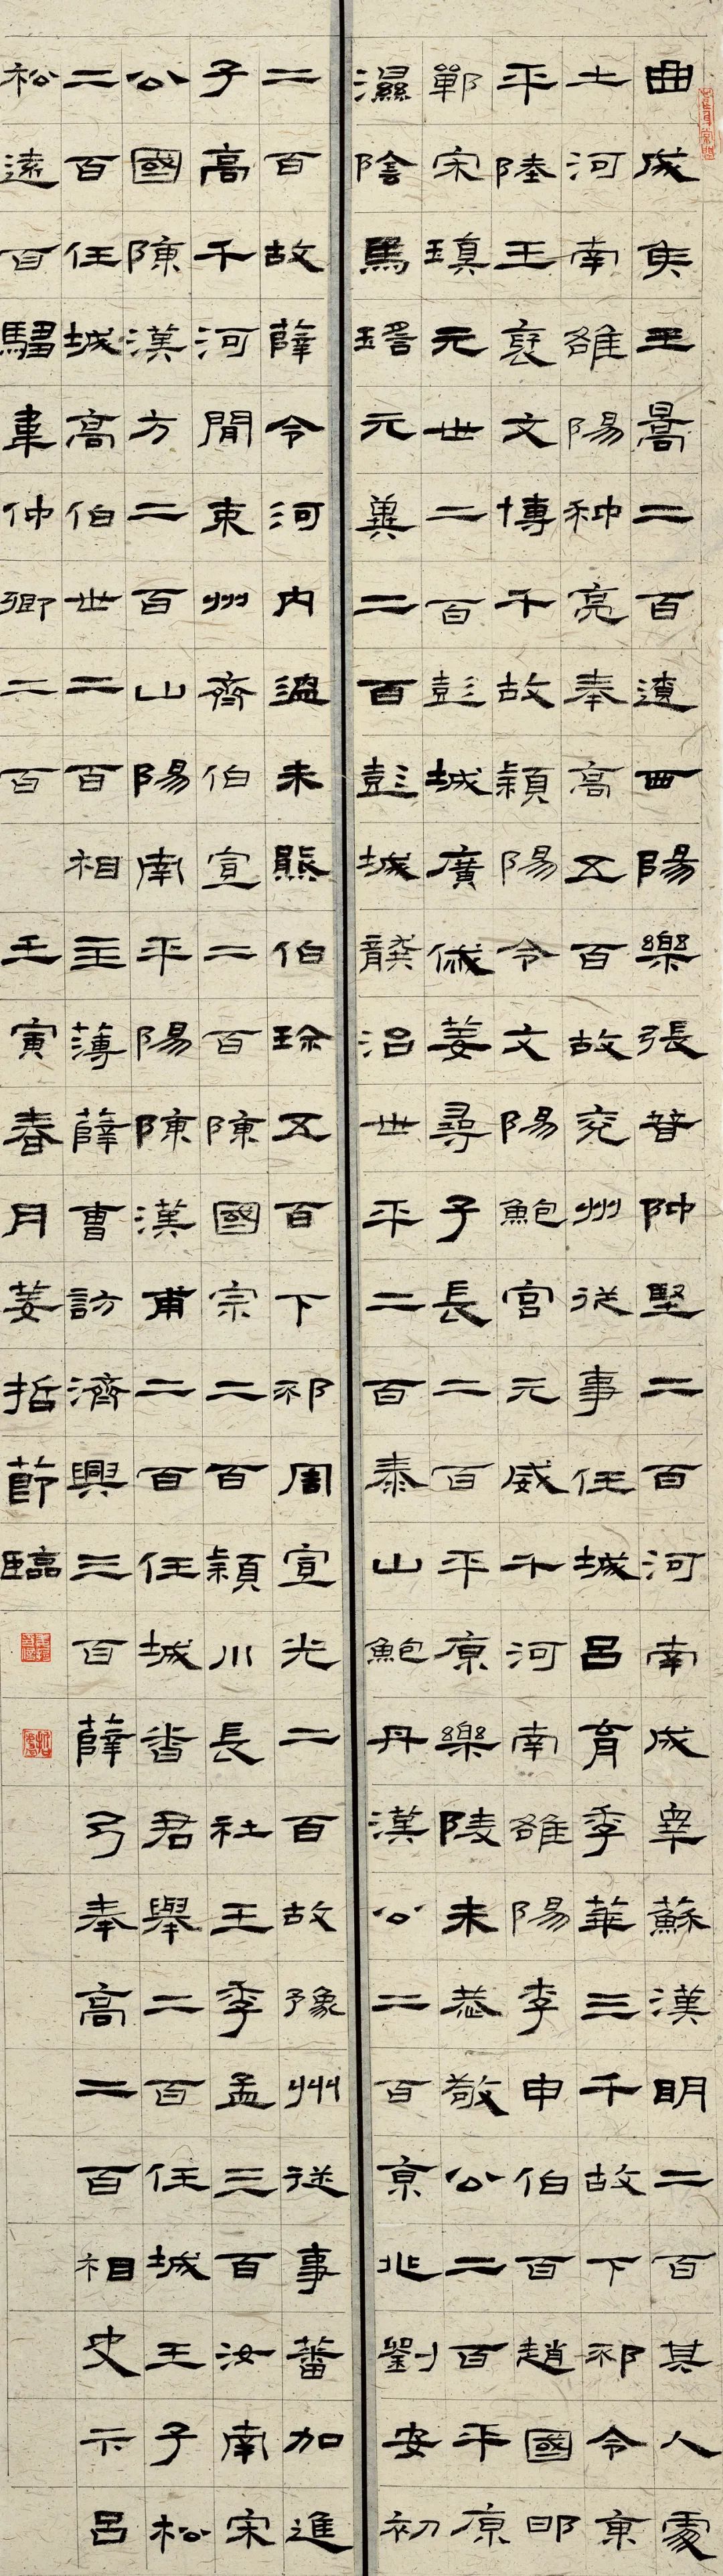 曲成侯王暠二百遼西陽樂張普仲堅二百河南成睾蘇漢明二百其人處
士河南雒陽种亮奉高五百故兗州從事任城呂育季華三千故下邳令東
平陸王襃文博千故穎陽令文陽鮑宮元威千河南雒陽李申伯百趙國邯
鄲宋瑱元世二百彭城廣俄姜尋子長二百平原樂陵朱恭敬公二百平原
濕陰馬瑤元冀二百彭城龔治世平二百泰山鮑丹漢公二百京兆劉安初
二百故薛令河內溫朱熊伯珍五百下邳周宣光二百故豫州從事蕃加進
子高千河間束州齊伯宣二百陳國宗二百穎川長社王季孟三百汝南宋
公國陳漢方二百山陽南平陽陳漢甫二百任城番君舉二百任城王子松
二百任城高伯世二百相主薄薛曹訪濟興三百薛弓奉高二百相史卞呂
松遠百騶韋仲卿二百 壬寅春月姜哲節臨